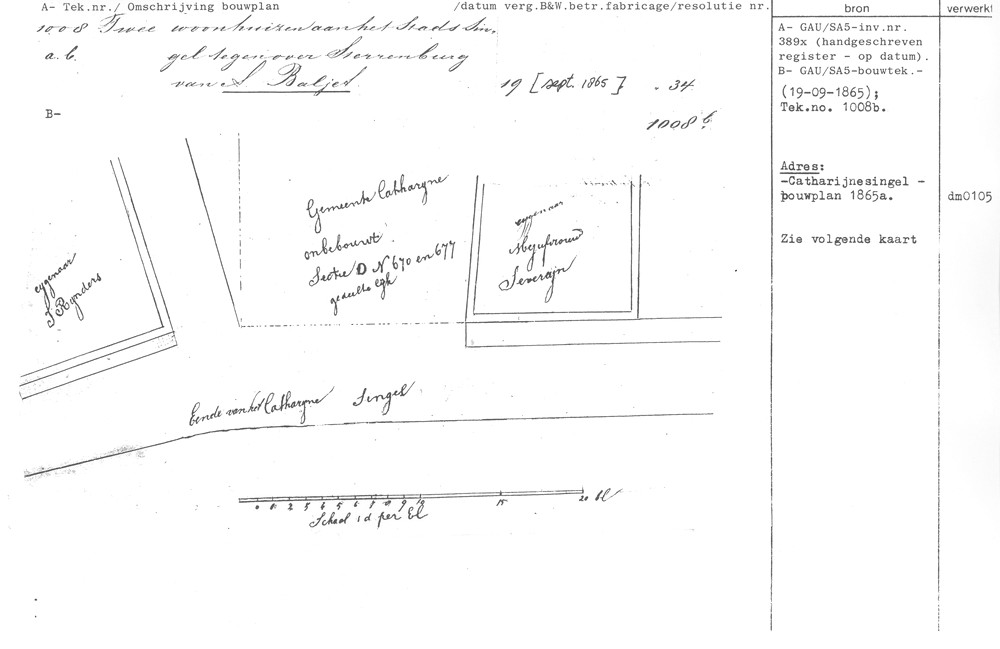 A- Tek.nr./ Omschrijving bouwplan /datum verg.B&W.betr.fabricage/resolutie nr. bron verwerkt
1008 Twee woonhuizen aan het Stads Sin,
a. b. gel tegen over Sterrenburg
van S Baljet 19 [sept. 1865] . 34
B-
1008 b.
Gemeente Catharyne
onbebouwt.
Sectie D N 670 en 677
gedeelte lyk
eygenaar
Mejufvrouw
Severijn
eygenaar
J Rynders
Einde van het Catharyne Singel
0 1 2 3 4 5 6 7 8 9 10 15 20 El
Schaal 1 d per El
A- GAU/SA5-inv.nr.
389x (handgeschreven
register - op datum).
B- GAU/SA5-bouwtek.-
(19-09-1865);
Tek.no. 1008b.
Adres:
-Catharijnesingel -
bouwplan 1865a. dm0105
Zie volgende kaart